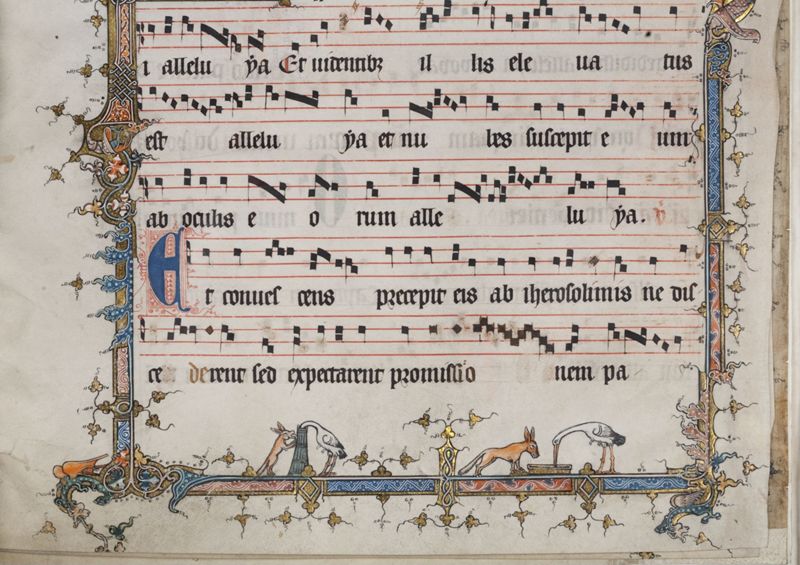 i allelu ẏa Et uidentibꝫ il lis ele ua tus
est allelu ẏa et nu bes suscepit e um
ab oculis e o rum alle lu ẏa. ℣
Et conues cens precepit eis ab iherosolimis ne dis
ce derent sed expectarent promissio nem pa